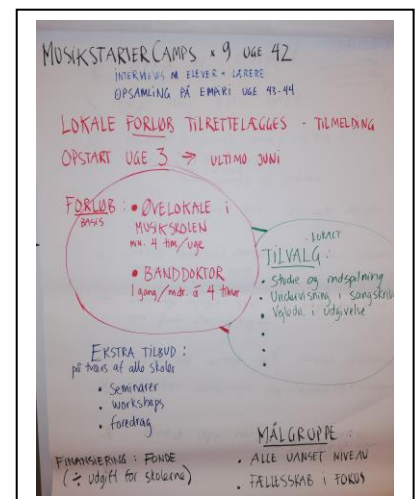 MUSIKSTARTER CAMPS x 9 UGE 42
INTERVIEWS M ELEVER + LÆRERE
OPSAMLING PÅ EMPIRI UGE 43-44
LOKALE FORLØB TILRETTELÆGGES - TILMELDING
OPSTART UGE 3 → ULTIMO JUNI
FORLØB:
BASIS
• ØVELOKALE i
MUSIKSKOLEN
min. 4 tim/uge
• BANDDOKTOR
1 gang/mdr. á 4 timer
LOKALT
TILVALG:
• Studie og indspilning
• Undervisning i sangskriv
• Vejledn. i udgivelse
•
•
•
EKSTRA TILBUD:
på tværs af alle skoler
• Seminarer
• workshops
• foredrag
FINANSIERING: FONDE
(÷ udgift for skolerne)
MÅLGRUPPE:
• ALLE UANSET NIVEAU
• FÆLLESSKAB I FOKUS